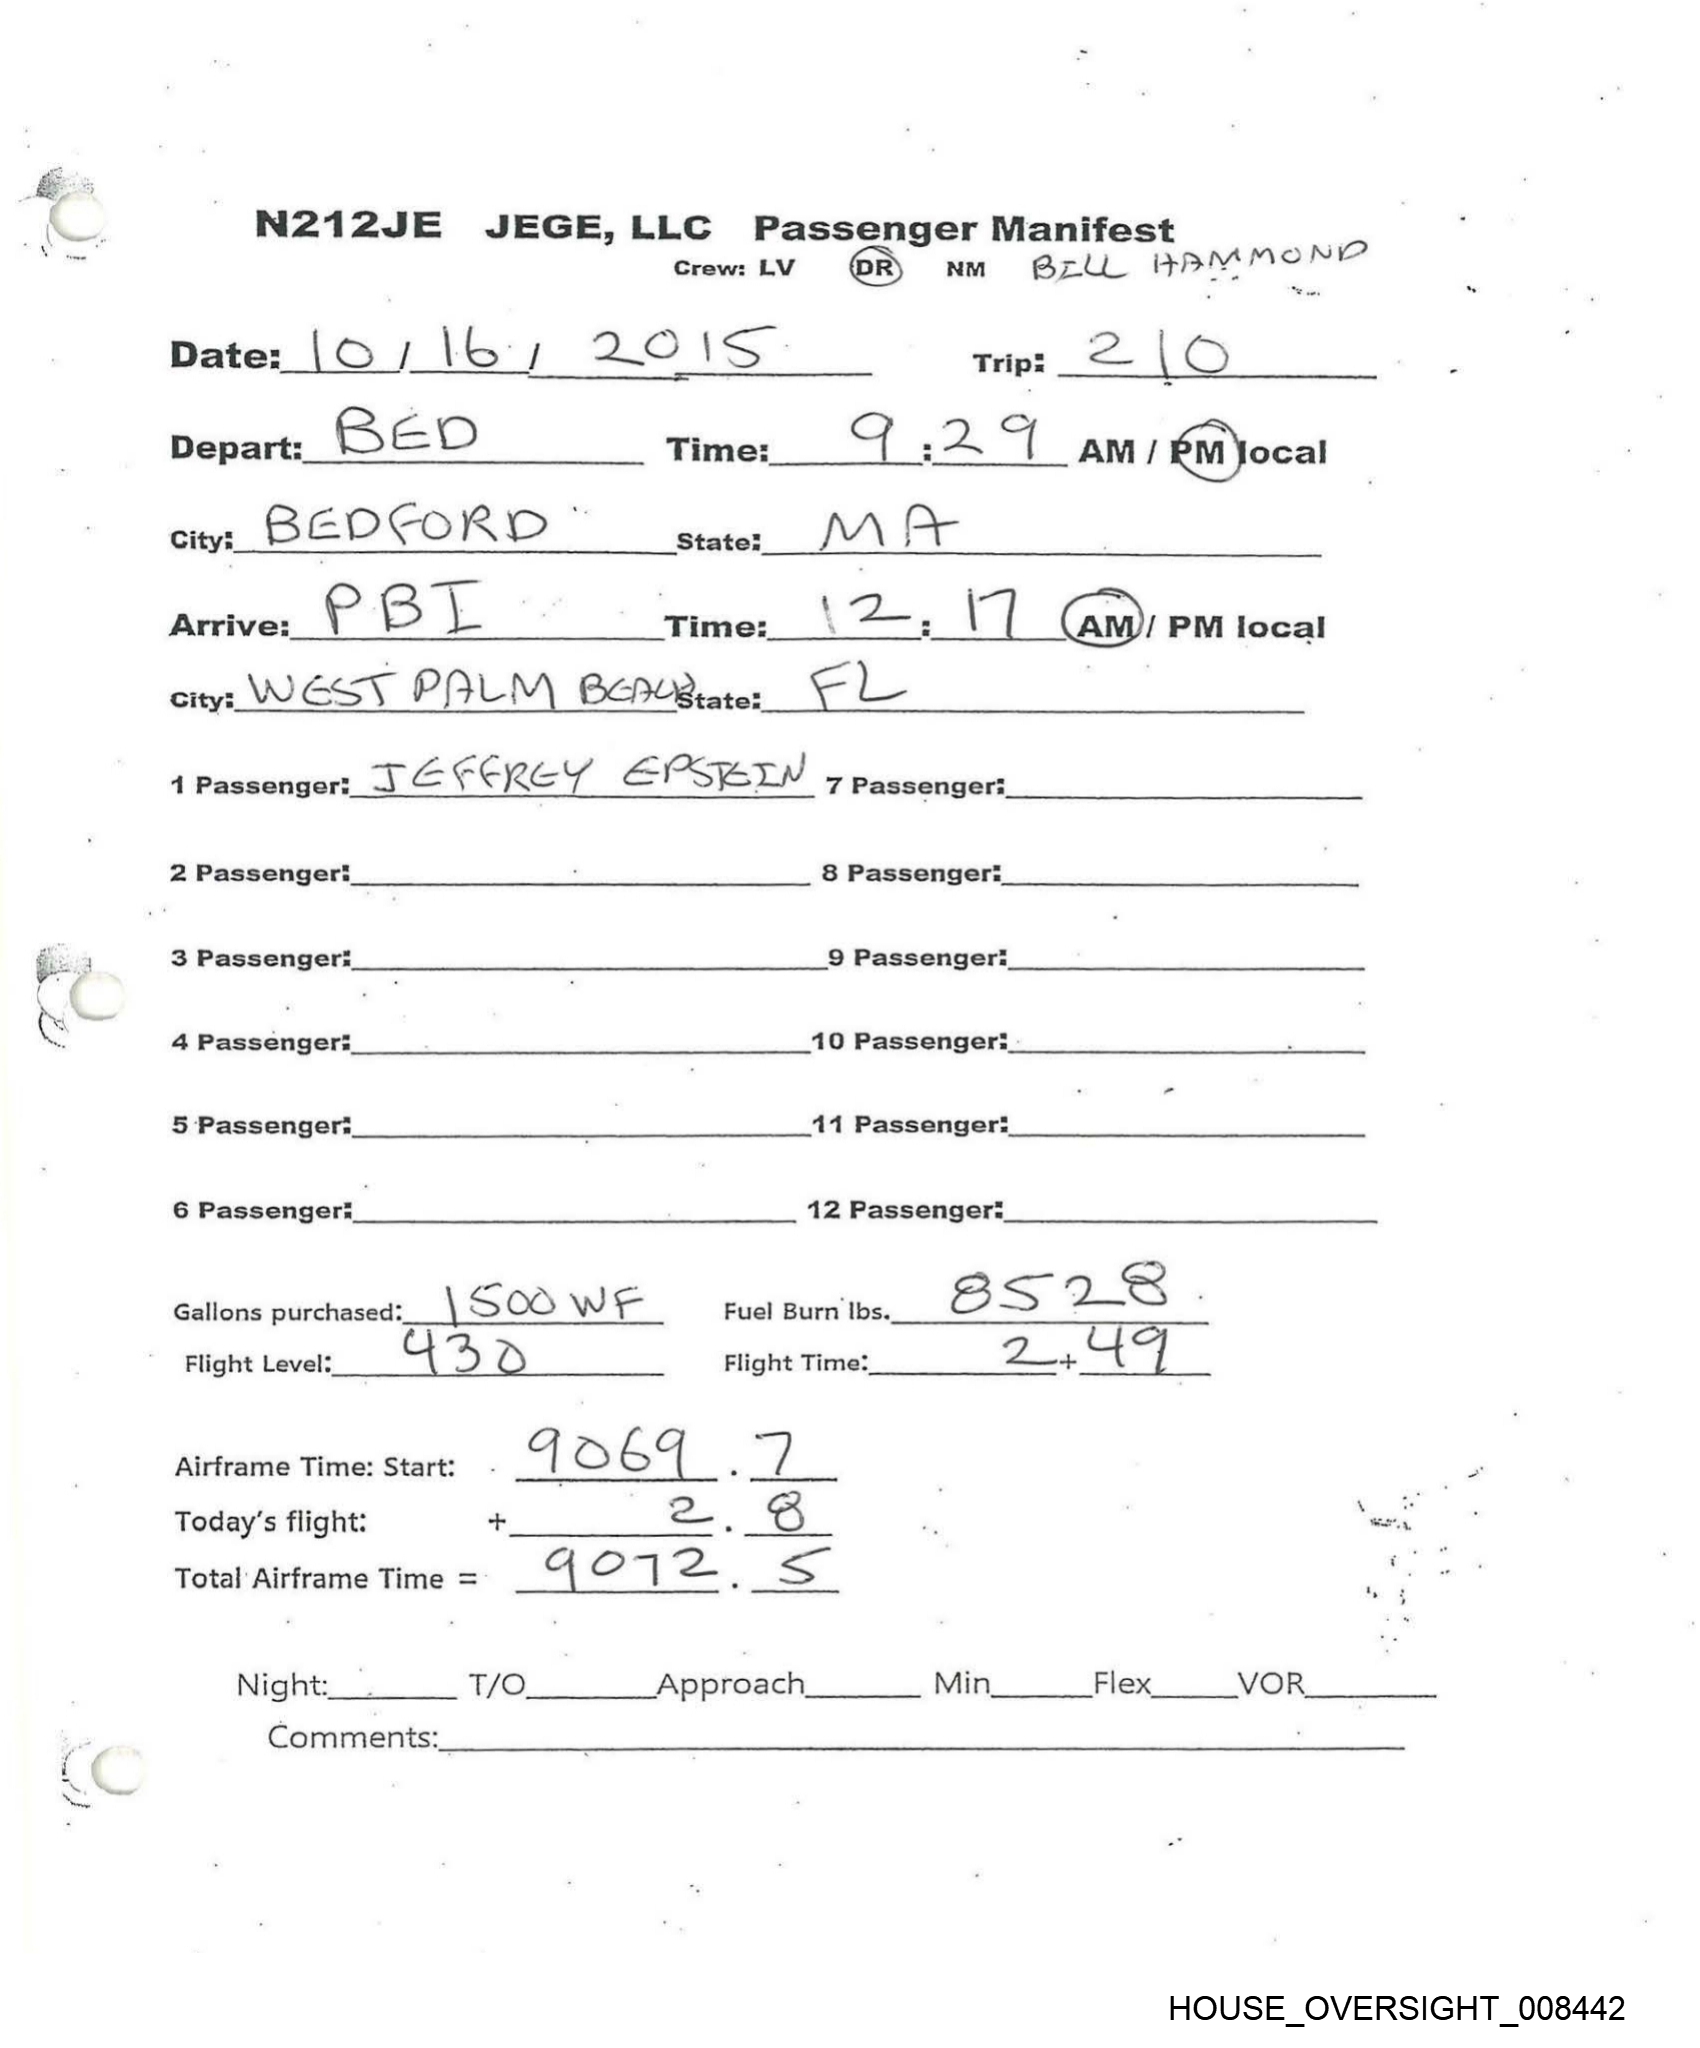 N212JE JEGE, LLC Passenger Manifest
Crew: LV DR NM BILL HAMMOND
Date: 10 / 16 / 2015 Trip: 210
Depart: BED Time: 9:29 AM / PM local
City: BEDFORD State: MA
Arrive: PBI Time: 12:17 AM / PM local
City: WEST PALM BEACH State: FL
1 Passenger: JEFFREY EPSTEIN 7 Passenger:
2 Passenger: 8 Passenger:
3 Passenger: 9 Passenger:
4 Passenger: 10 Passenger:
5 Passenger: 11 Passenger:
6 Passenger: 12 Passenger:
Gallons purchased: 1500 WF Fuel Burn lbs. 8528
Flight Level: 430 Flight Time: 2 + 49
Airframe Time: Start: 9069.7
Today's flight: + 2.8
Total Airframe Time = 9072.5
Night: T/O Approach Min Flex VOR
Comments:
HOUSE_OVERSIGHT_008442